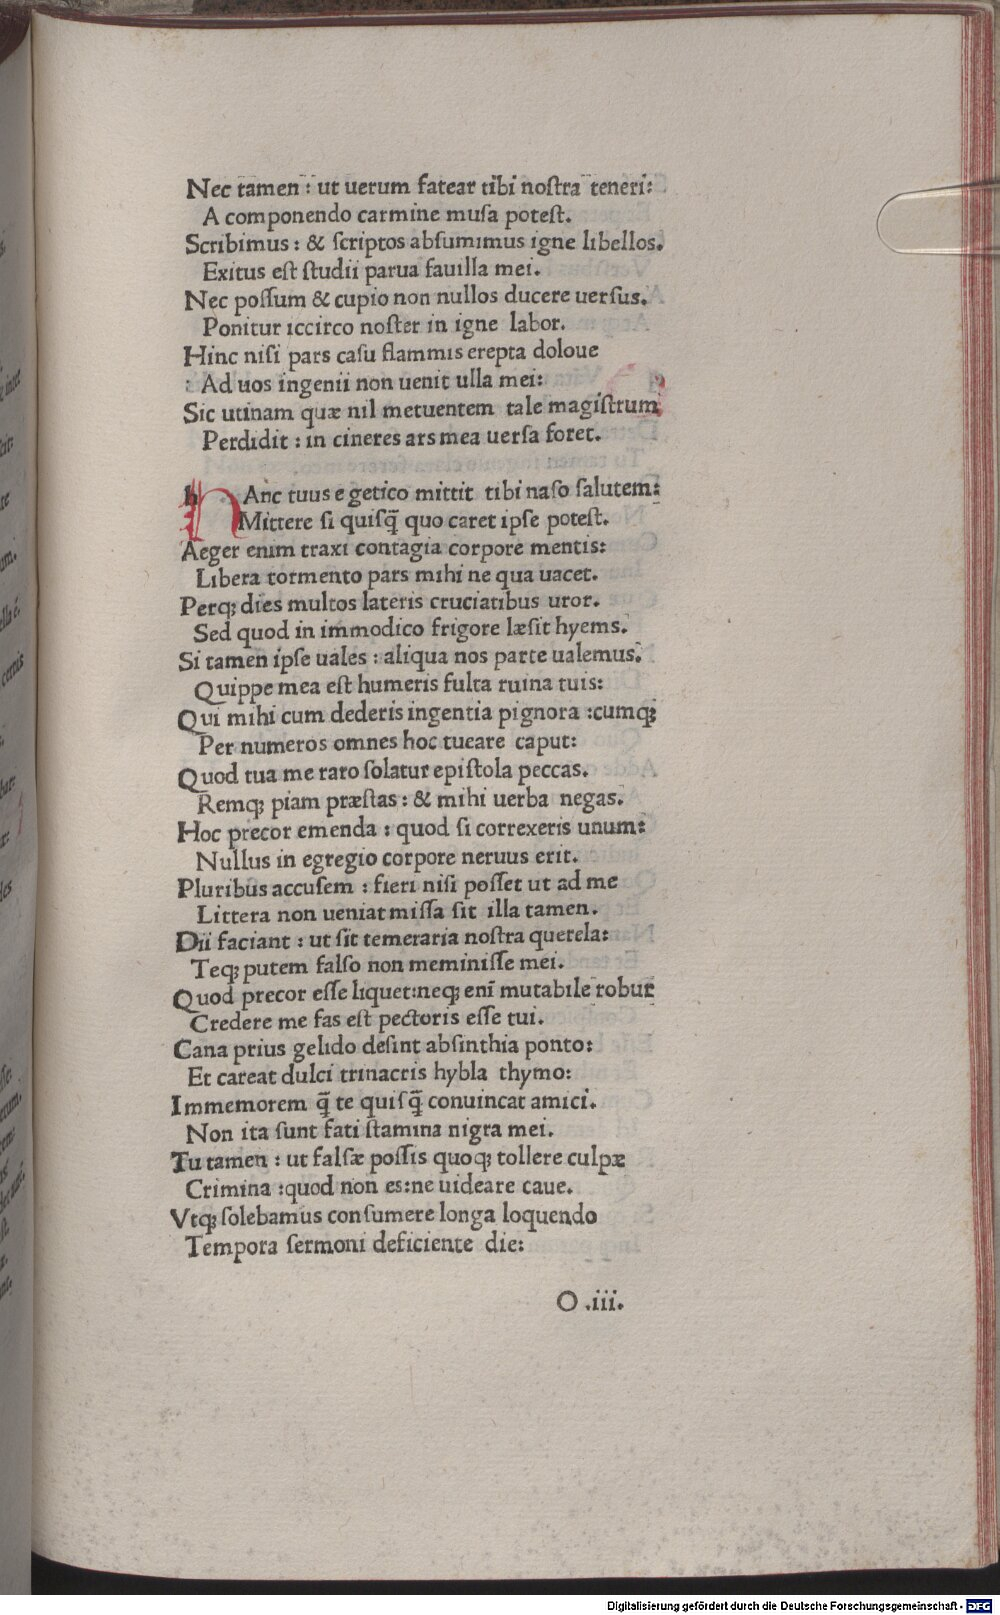 Nec tamen : ut uerum fatear tibi noſtra teneri:
A componendo carmine muſa poteſt.
Scribimus : & ſcriptos abſumimus igne libellos.
Exitus eſt ſtudii parua fauilla mei.
Nec poſſum & cupio non nullos ducere uerſus.
Ponitur iccirco noſter in igne labor.
Hinc niſi pars caſu flammis erepta doloue
: Ad uos ingenii non uenit ulla mei:
Sic utinam quæ nil metuentem tale magiſtrum
Perdidit : in cineres ars mea uerſa foret.
hAnc tuus e getico mittit tibi naſo ſalutem:
Mittere ſi quiſq̄ quo caret ipſe poteſt.
Aeger enim traxi contagia corpore mentis:
Libera tormento pars mihi ne qua uacet.
Perq; dies multos lateris cruciatibus uror.
Sed quod in immodico frigore læſit hyems.
Si tamen ipſe uales : aliqua nos parte ualemus.
Quippe mea eſt humeris fulta ruina tuis:
Qui mihi cum dederis ingentia pignora :cumq;
Per numeros omnes hoc tueare caput:
Quod tua me raro ſolatur epiſtola peccas.
Remq; piam præſtas : & mihi uerba negas.
Hoc precor emenda : quod ſi correxeris unum:
Nullus in egregio corpore neruus erit.
Pluribus accuſem : fieri niſi poſſet ut ad me
Littera non ueniat miſſa ſit illa tamen.
Dii faciant : ut ſit temeraria noſtra querela:
Teq; putem falſo non meminiſſe mei.
Quod precor eſſe liquet:neq; eni̅ mutabile robur
Credere me fas eſt pectoris eſſe tui.
Cana prius gelido deſint abſinthia ponto:
Et careat dulci trinacris hybla thymo:
Immemorem q̄ te quiſq̄ conuincat amici.
Non ita ſunt fati ſtamina nigra mei.
Tu tamen : ut falſæ poſſis quoq; tollere culpæ
Crimina :quod non es:ne uideare caue.
Vtq; ſolebamus conſumere longa loquendo
Tempora ſermoni deficiente die:
O .iii.
Digitalisierung gefördert durch die Deutsche Forschungsgemeinschaft - DFG